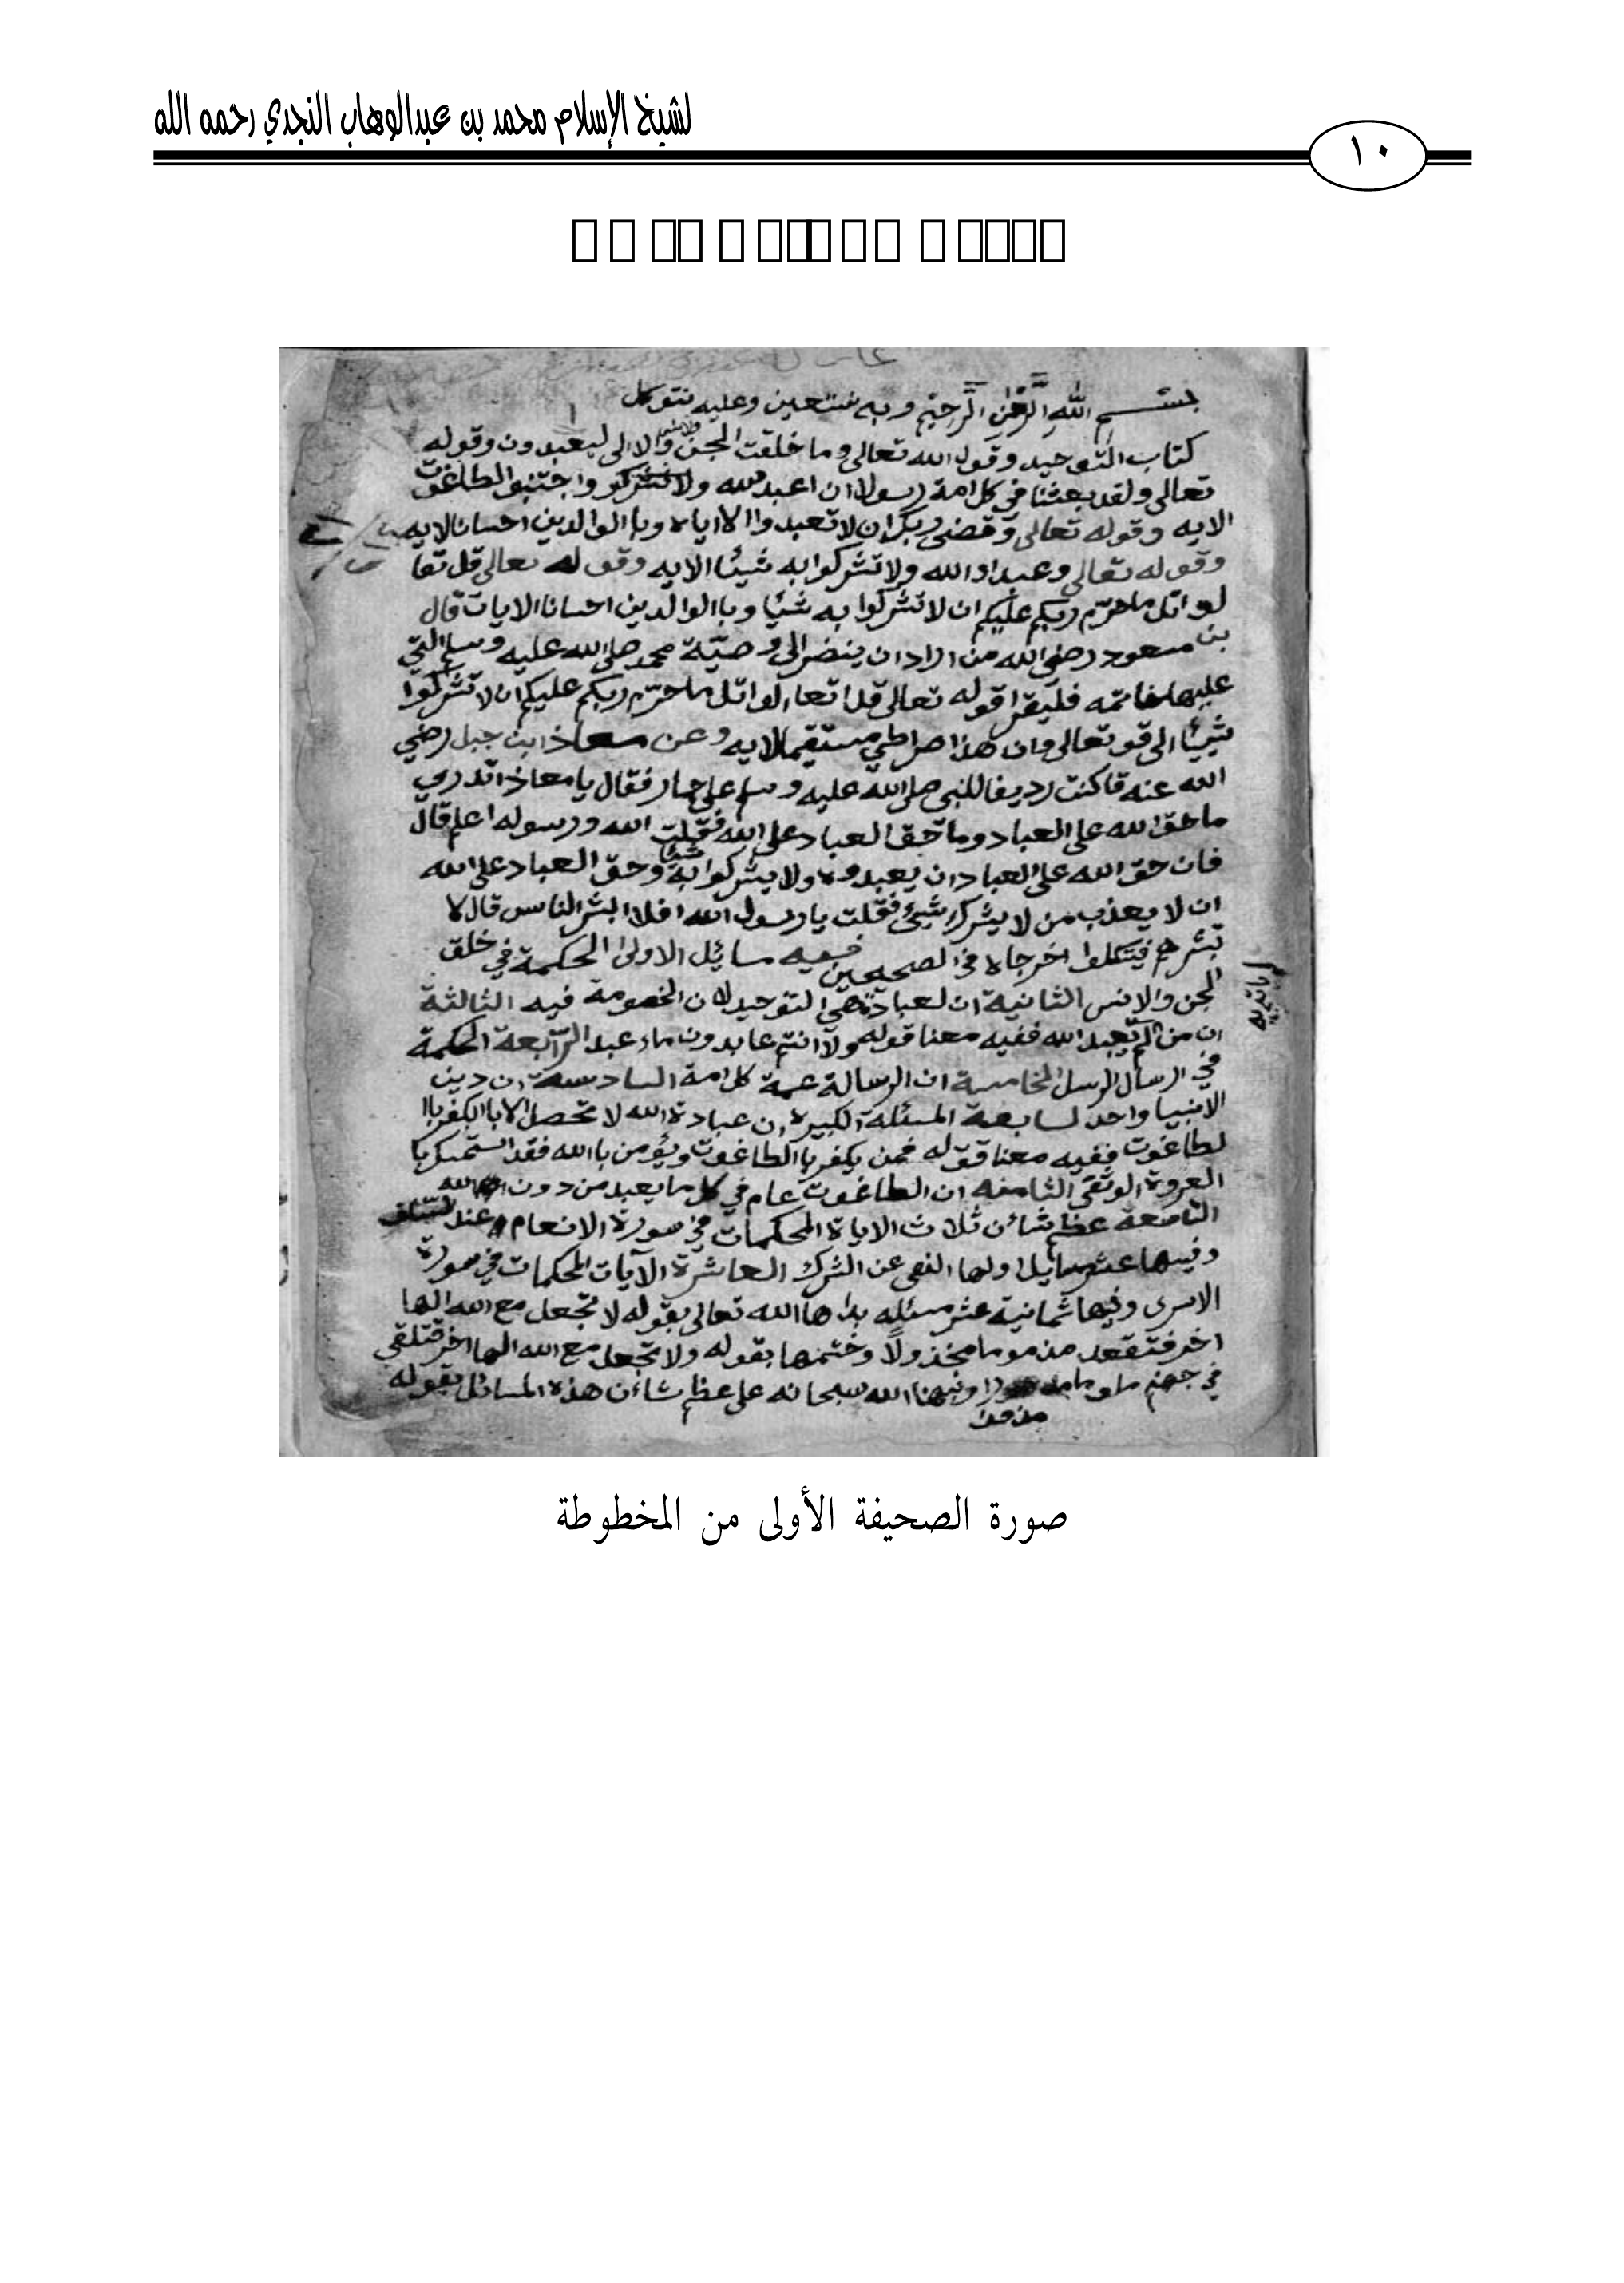 لشيخ الإسلام محمد بن عبدالوهاب النجدي رحمه الله
١٠
بسم الله الرَّحمن الرَّحيم وبه نستعين وعليه نتوكل
كتاب التوحيد وقول الله تعالى وما خلقت الجن والانس الا الى ليعبدون وقوله
تعالى ولقد بعثنا في كل امة رسولا ان اعبد لله ولا تشركو واجتنبو الطاغوت
الايه وقوله تعالى وقضى ربك ان لا تعبدوا الا اياه وباالوالدين احسانا الايه
وقوله تعالى وعبداد الله ولا تشركوا به شيئا الايه وقوله تعالى قل تعا
لو اتل ما حرّم ربكم عليكم ان لا تشركوا به شيئا وباالوالدين احسانا الايات قال
بن مسعود رضي الله من اراد ان ينضر الى وصيّة محمد صلى الله عليه وسلم التي
عليها خاتمه فليقرا قوله تعالى قل تعالوا اتل ما حرّم ربكم عليكم ان لا تشركوا
شيئا الى قو تعالى وان هذا صراطي مستقيما لايه وعن معاذ ابن جبل رضي
الله عنه قا كنت رديفا للنبي صلى الله عليه وسلم على حمار فقال يا معاذ اتدري
ما حق الله على العباد وما حق العباد على الله فقلت الله ورسوله اعلم قال
فان حق الله على العباد ان يعبدوه ولا يشركوا به شيئا وحق العباد على الله
ان لا يعذب من لا يشرك شيئ فقلت يا رسول الله افلا ابشر الناس قال لا
تبشرهم فيتكلوا اخرجاه في الصحيحين فيه مسائل الاولى الحكمة في خلق
الجن والانس الثانية ان لعبادة هي التوحيد لان الخصومة فيه الثالثة
ان من لم يعبد الله ففيه معنا قوله ولا انتم عابدون ما اعبد الرّابعة الحكمة
في ارسال الرسل الخامسة ان الرسالة عمة كل امة السادسة ان دين
الانبيا واحد لسابعة المسئلة الكبيره ان عبادة الله لا تحصل الا باالكفر باا
لطاغوت ففيه معنا قوله فمن يكفر باالطاغوت ويؤمن باالله فقد استمسك با
العروة الوثقى الثامنه ان الطاغوت عام في كل ما يعبد من دون الله
التاسعة عظم شائن ثلاث الاياة المحكمات في سورة الانعام عند السلف
وفيها عشر مسايل اولها النهي عن الشرك العاشرة الآيات المحكمات في سورة
الاسرى وفيها ثمانية عشر مسئله بداها الله تعالى بقوله لا تجعل مع الله الها
اخر فتقعد مذموما مخذولًا وختمها بقوله ولا تجعل مع الله الها اخر فتلقى
في جهنم ملوما مدحورا ونبهنا الله سبحانه على عظم شائن هذه المسائل بقوله
صورة الصحيفة الأولى من المخطوطة